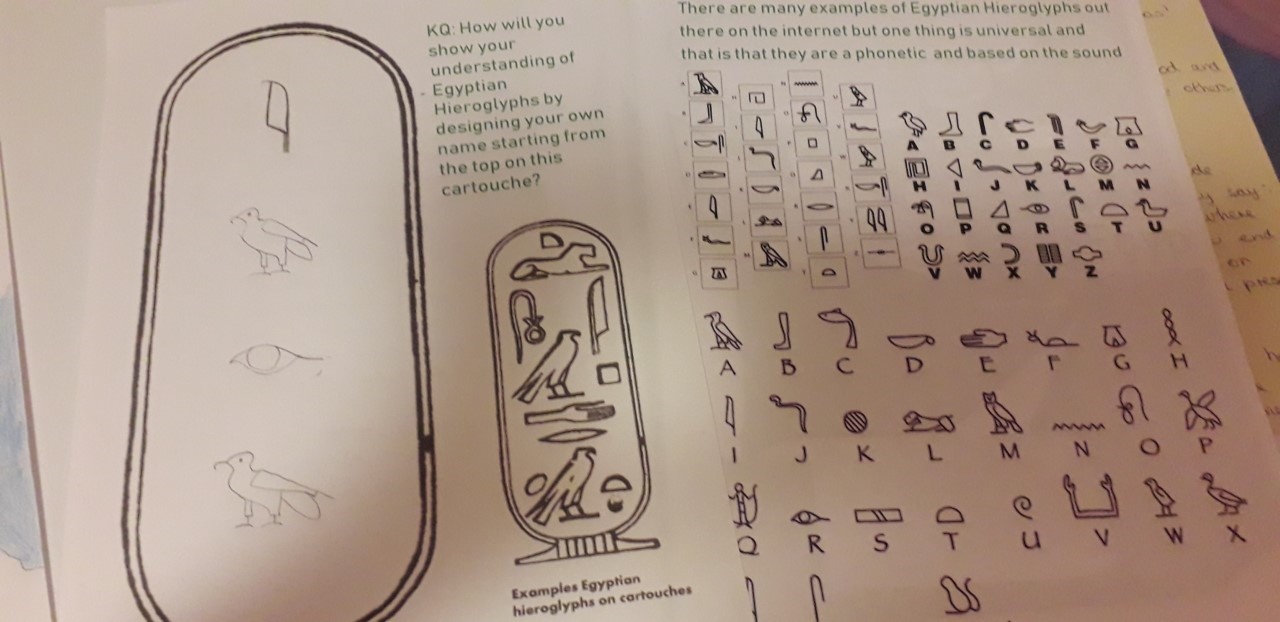 KQ: How will you
show your
understanding of
Egyptian
Hieroglyphs by
designing your own
name starting from
the top on this
cartouche?
There are many examples of Egyptian Hieroglyphs out
there on the internet but one thing is universal and
that is that they are a phonetic and based on the sound
A B C D E F G
H I J K L M N
O P Q R S T U
V W X Y Z
A B C D E F G H
I J K L M N O P
Q R S T U V W X
Examples Egyptian
hieroglyphs on cartouches
and
other
say
where
end